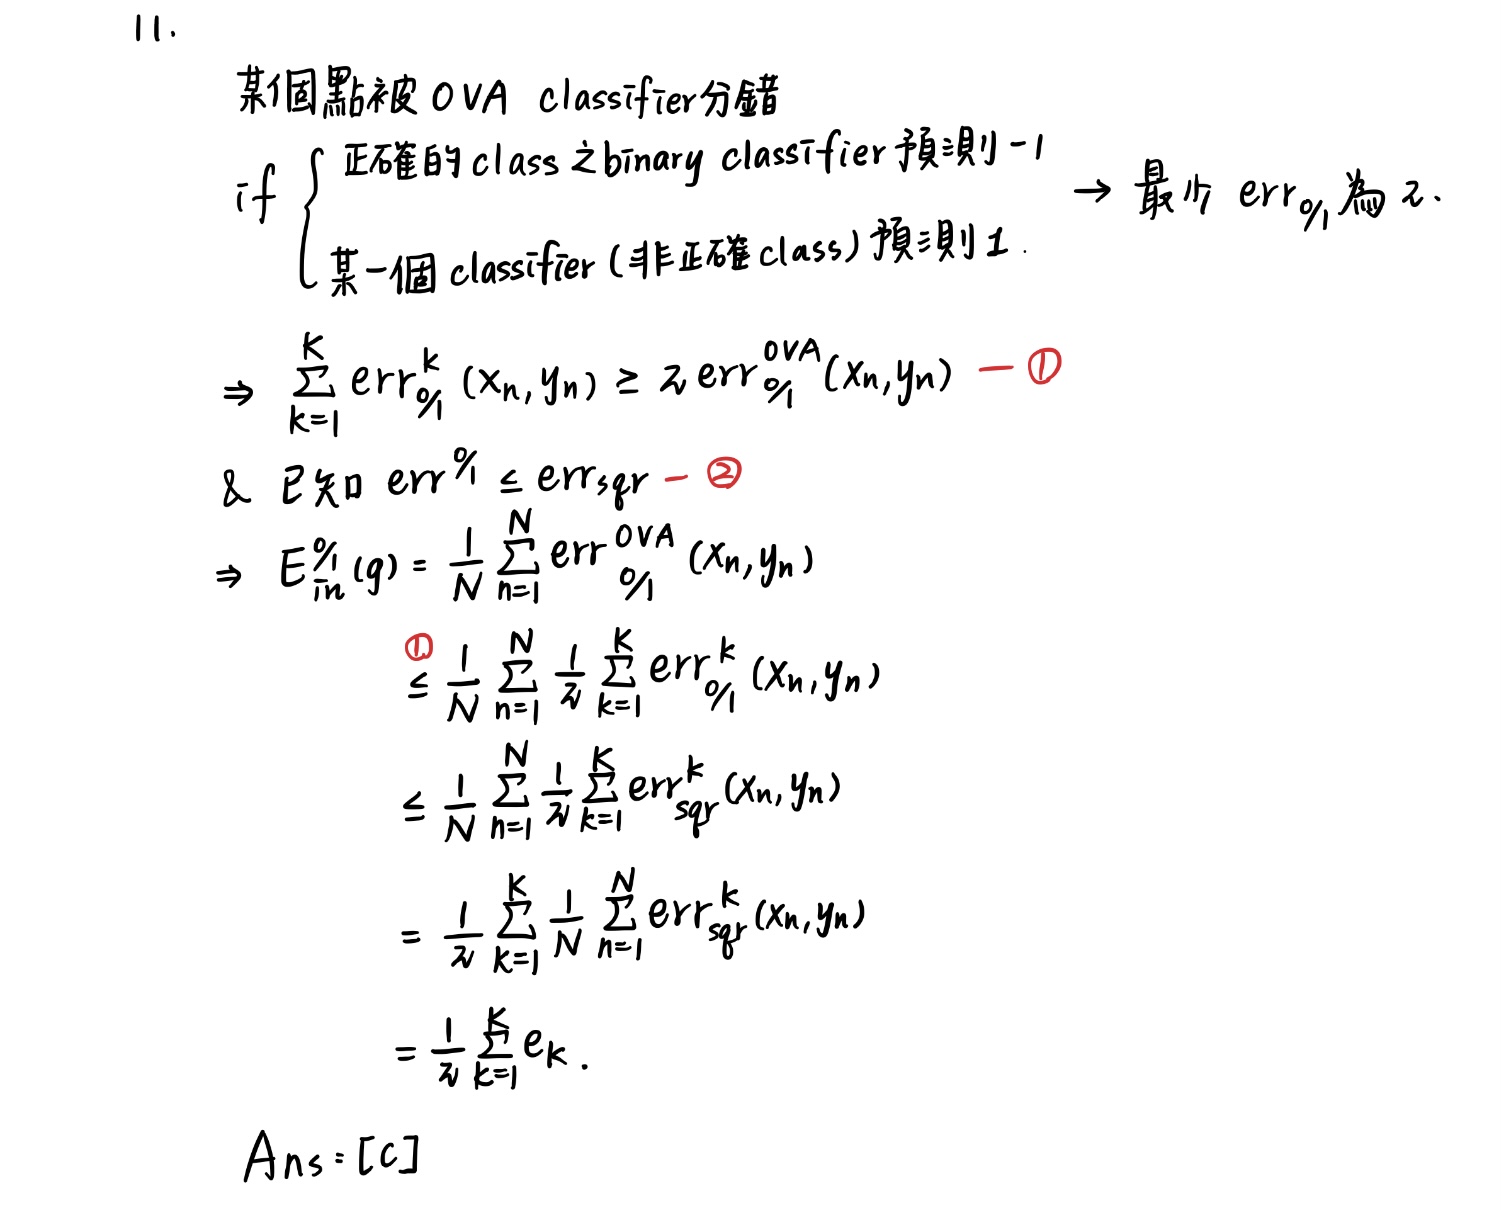 11.
某個點被 OVA classifier 分錯
if { 正確的 class 之 binary classifier 預測 -1
某一個 classifier (非正確 class) 預測 1.
→ 最少 err_{0/1} 為 2.
⇒ \sum_{k=1}^{K} err_{0/1}^{k} (x_n, y_n) ≥ 2 err_{0/1}^{OVA} (x_n, y_n) — ①
& 已知 err^{0/1} ≤ err_{sqr} — ②
⇒ E_{in}^{0/1} (g) = \frac{1}{N} \sum_{n=1}^{N} err_{0/1}^{OVA} (x_n, y_n)
① ≤ \frac{1}{N} \sum_{n=1}^{N} \frac{1}{2} \sum_{k=1}^{K} err_{0/1}^{k} (x_n, y_n)
≤ \frac{1}{N} \sum_{n=1}^{N} \frac{1}{2} \sum_{k=1}^{K} err_{sqr}^{k} (x_n, y_n)
= \frac{1}{2} \sum_{k=1}^{K} \frac{1}{N} \sum_{n=1}^{N} err_{sqr}^{k} (x_n, y_n)
= \frac{1}{2} \sum_{k=1}^{K} e_k .
Ans = [c]